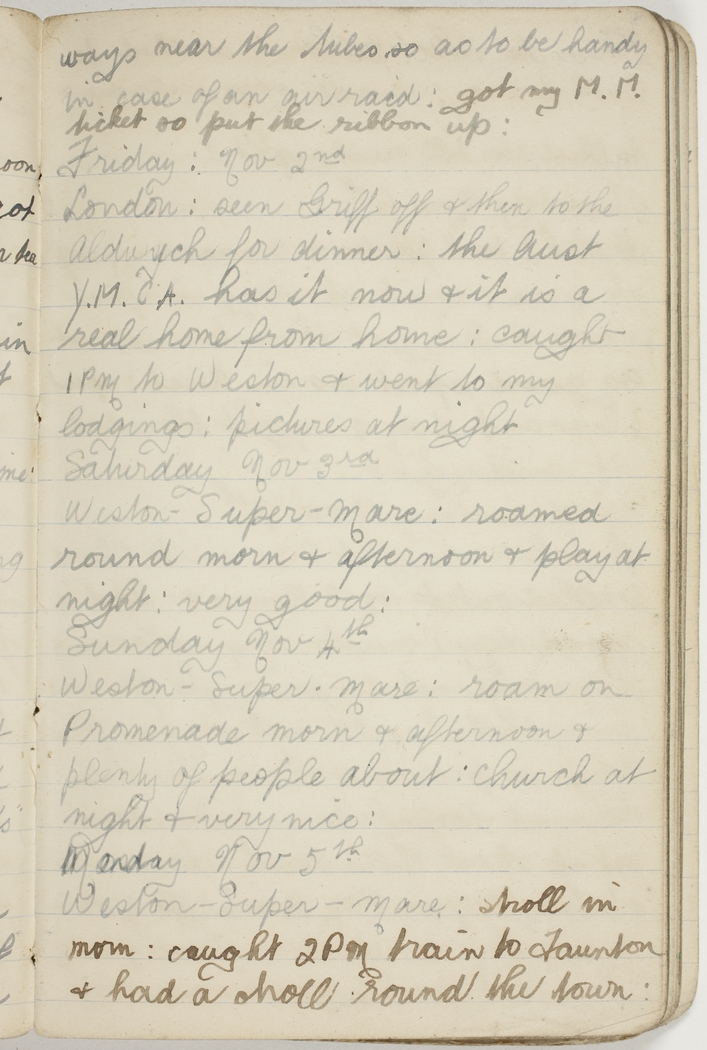 ways near the tubes so as to be handy
in case of an air raid: got my M.M.
ticket so put the ribbon up:
Friday: Nov 2nd
London: seen Griff off & then to the
Aldwych for dinner: the Aust
Y.M.C.A. has it now & it is a
real home from home: caught
1PM to Weston & went to my
lodgings: pictures at night
Saturday Nov 3rd
Weston-Super-Mare: roamed
round morn & afternoon & play at
night: very good:
Sunday Nov 4th
Weston-Super-Mare: roam on
Promenade morn & afternoon &
plenty of people about: church at
night & very nice:
Monday Nov 5th
Weston-Super-Mare: stroll in
morn: caught 2PM train to Taunton
& had a stroll round the town: